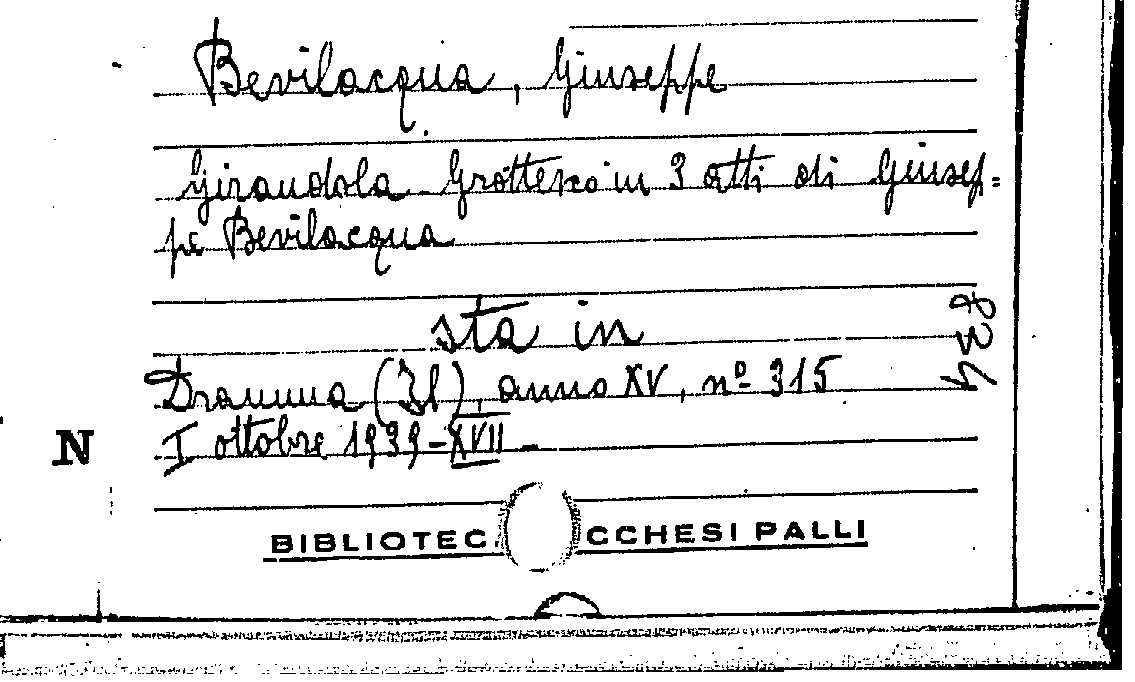 Bevilacqua, Giuseppe
Girandola Grottesco in 3 atti di Giusep=
pe Bevilacqua
sta in
Dramma (Il), anno XV, nº 315
I ottobre 1939-XVII-
N
BIBLIOTEC CCHESI PALLI